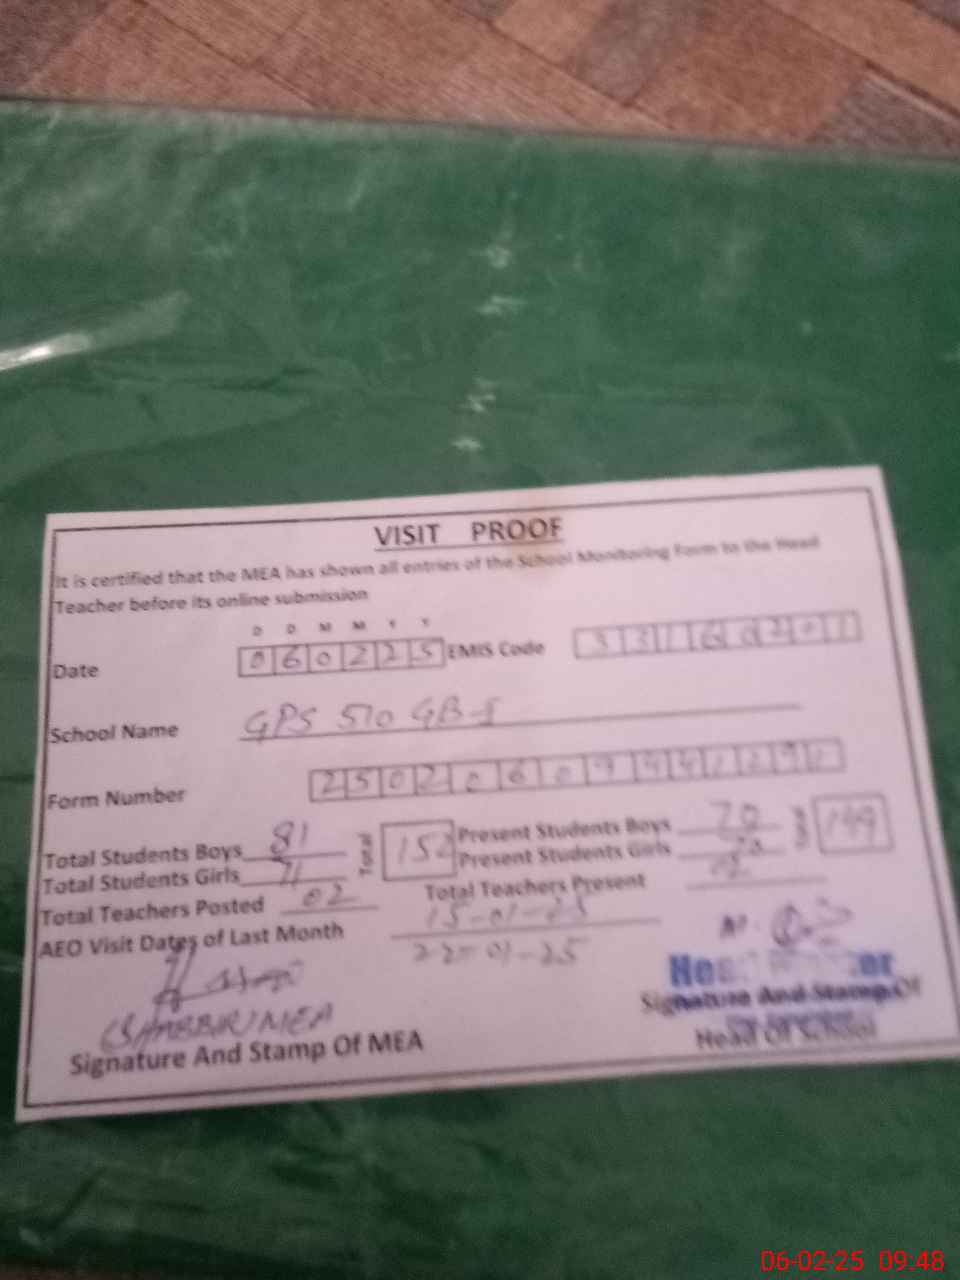 VISIT PROOF
It is certified that the MEA has shown all entries of the School Monitoring Form to the Head
Teacher before its online submission
D D M M Y Y
Date 060225 EMIS Code 33160201
School Name GPS 510 GB-I
Form Number
Total Students Boys 81 Total 152 Present Students Boys 70 Total
Total Students Girls 71 Present Students Girls
Total Teachers Posted 02 Total Teachers Present
AEO Visit Dates of Last Month 15-01-25
22-01-25
(SHABBIR) MEA
Signature And Stamp Of MEA
Head
Signature And Stamp Of
Head Of School
06-02-25 09:48